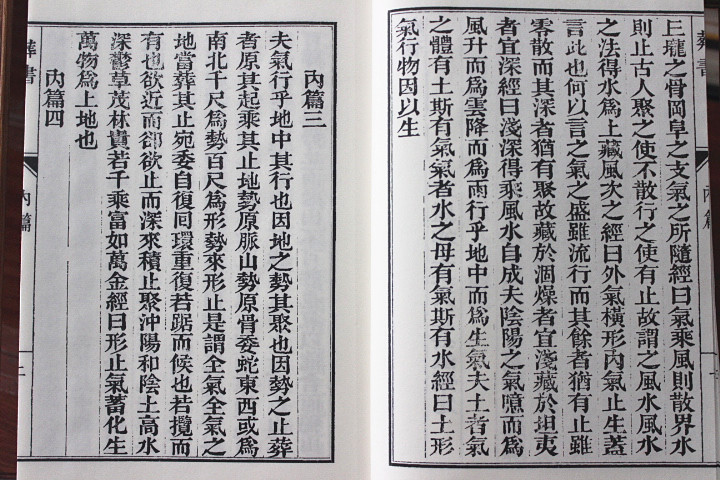 葬書
內篇
丘壠之骨岡阜之支氣之所隨經曰氣乘風則散界水
則止古人聚之使不散行之使有止故謂之風水風水
之法得水爲上藏風次之經曰外氣橫形內氣止生蓋
言此也何以言之氣之盛雖流行而其餘者猶有止雖
零散而其深者猶有聚故藏於涸燥者宜淺藏於坦夷
者宜深經曰淺深得乘風水自成夫陰陽之氣噫而爲
風升而爲雲降而爲雨行乎地中而爲生氣夫土者氣
之體有土斯有氣氣者水之母有氣斯有水經曰土形
氣行物因以生
內篇三
夫氣行乎地中其行也因地之勢其聚也因勢之止葬
者原其起乘其止地勢原脈山勢原骨委蛇東西或爲
南北千尺爲勢百尺爲形勢來形止是謂全氣全氣之
地當葬其止宛委自復回環重復若踞而候也若攬而
有也欲近而卻欲止而深來積止聚沖陽和陰土高水
深鬱草茂林貴若千乘富如萬金經曰形止氣蓄化生
萬物爲上地也
內篇四
葬書
內篇
二